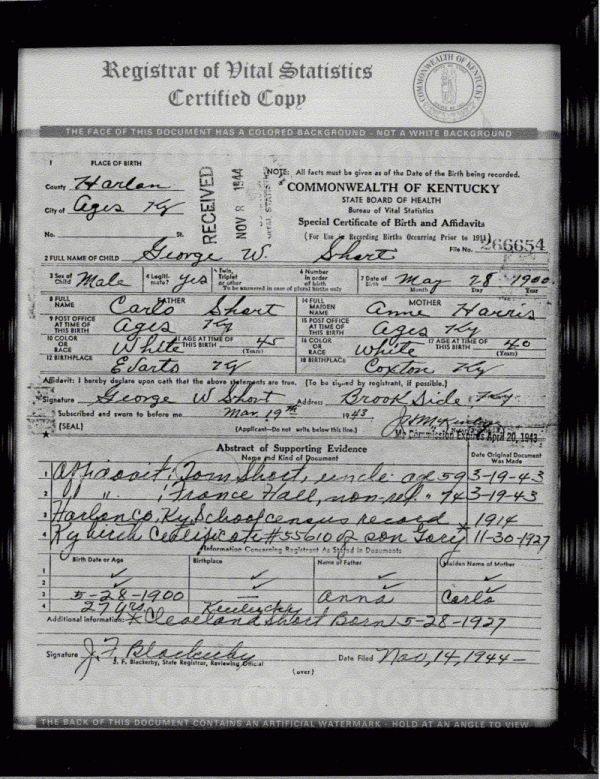 Registrar of Vital Statistics
Certified Copy
COMMONWEALTH OF KENTUCKY
THE FACE OF THIS DOCUMENT HAS A COLORED BACKGROUND - NOT A WHITE BACKGROUND
1 PLACE OF BIRTH
County Harlan
City of Ages Ky
No. St.
RECEIVED
NOV 8 1944
VITAL STATISTICS
NOTE: All facts must be given as of the Date of the Birth being recorded.
COMMONWEALTH OF KENTUCKY
STATE BOARD OF HEALTH
Bureau of Vital Statistics
Special Certificate of Birth and Affidavits
(For Use in Recording Births Occurring Prior to 1911)
File No. 266654
2 FULL NAME OF CHILD George W. Short
3 Sex of Child Male 4 Legitimate? yes 5 Twin, Triplet or other 6 Number in order of birth 7 Date of Birth May 28 1900
To be answered in case of plural births only Month Day Year
FATHER MOTHER
8 FULL NAME Carlo Short 14 FULL MAIDEN NAME Anne Harris
9 POST OFFICE AT TIME OF THIS BIRTH Ages Ky 15 POST OFFICE AT TIME OF THIS BIRTH Ages Ky
10 COLOR OR RACE White 11 AGE AT TIME OF THIS BIRTH 45 (Years) 16 COLOR OR RACE White 17 AGE AT TIME OF THIS BIRTH 40 (Years)
12 BIRTHPLACE Evarts Ky 18 BIRTHPLACE Coxton Ky
Affidavit: I hereby declare upon oath that the above statements are true. (To be signed by registrant, if possible.)
Signature George W Short Address Brook Side, Ky
Subscribed and sworn to before me Mar. 19th 1943
My Commission Expires April 20, 1943
(SEAL) (Applicant—Do not write below this line.)
Abstract of Supporting Evidence
Name and Kind of Document
Date Original Document Was Made
1 Affidavit; Tom Short, uncle age 59 3-19-43
2 " " ; France Hall, non-rel " 74 3-19-43
3 Harlan Co, Ky School census record * 1914
4 Ky birth Certificate #55610 of son Gory 11-30-1927
Information Concerning Registrant As Stated in Documents
Birth Date or Age Birthplace Name of Father Maiden Name of Mother
1 ✓ ✓ ✓ ✓
2 ✓ ✓ ✓ ✓
3 5-28-1900 — Anna Carlo
4 27 yrs. Kentucky
Additional information: * Cleveland Short Born 5-28-1927
Signature J. F. Blackerby Date Filed Nov, 14, 1944 —
J. F. Blackerby, State Registrar, Reviewing Official
(over)
THE BACK OF THIS DOCUMENT CONTAINS AN ARTIFICIAL WATERMARK - HOLD AT AN ANGLE TO VIEW